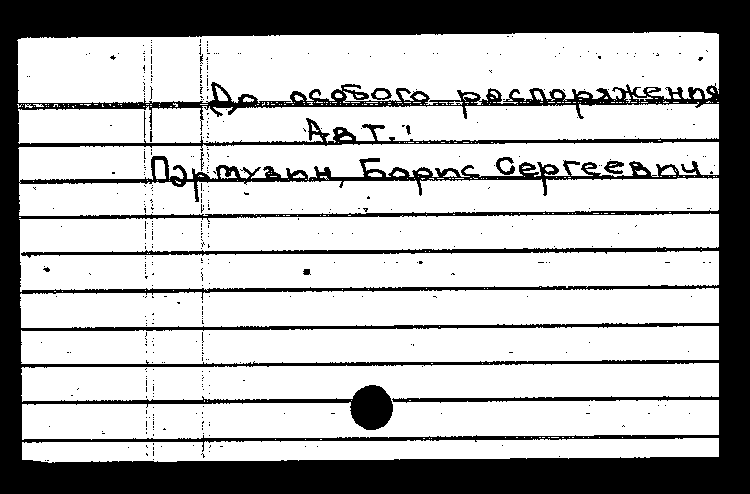 До особого распоряжения
Авт.:
Партузин, Борис Сергеевич.